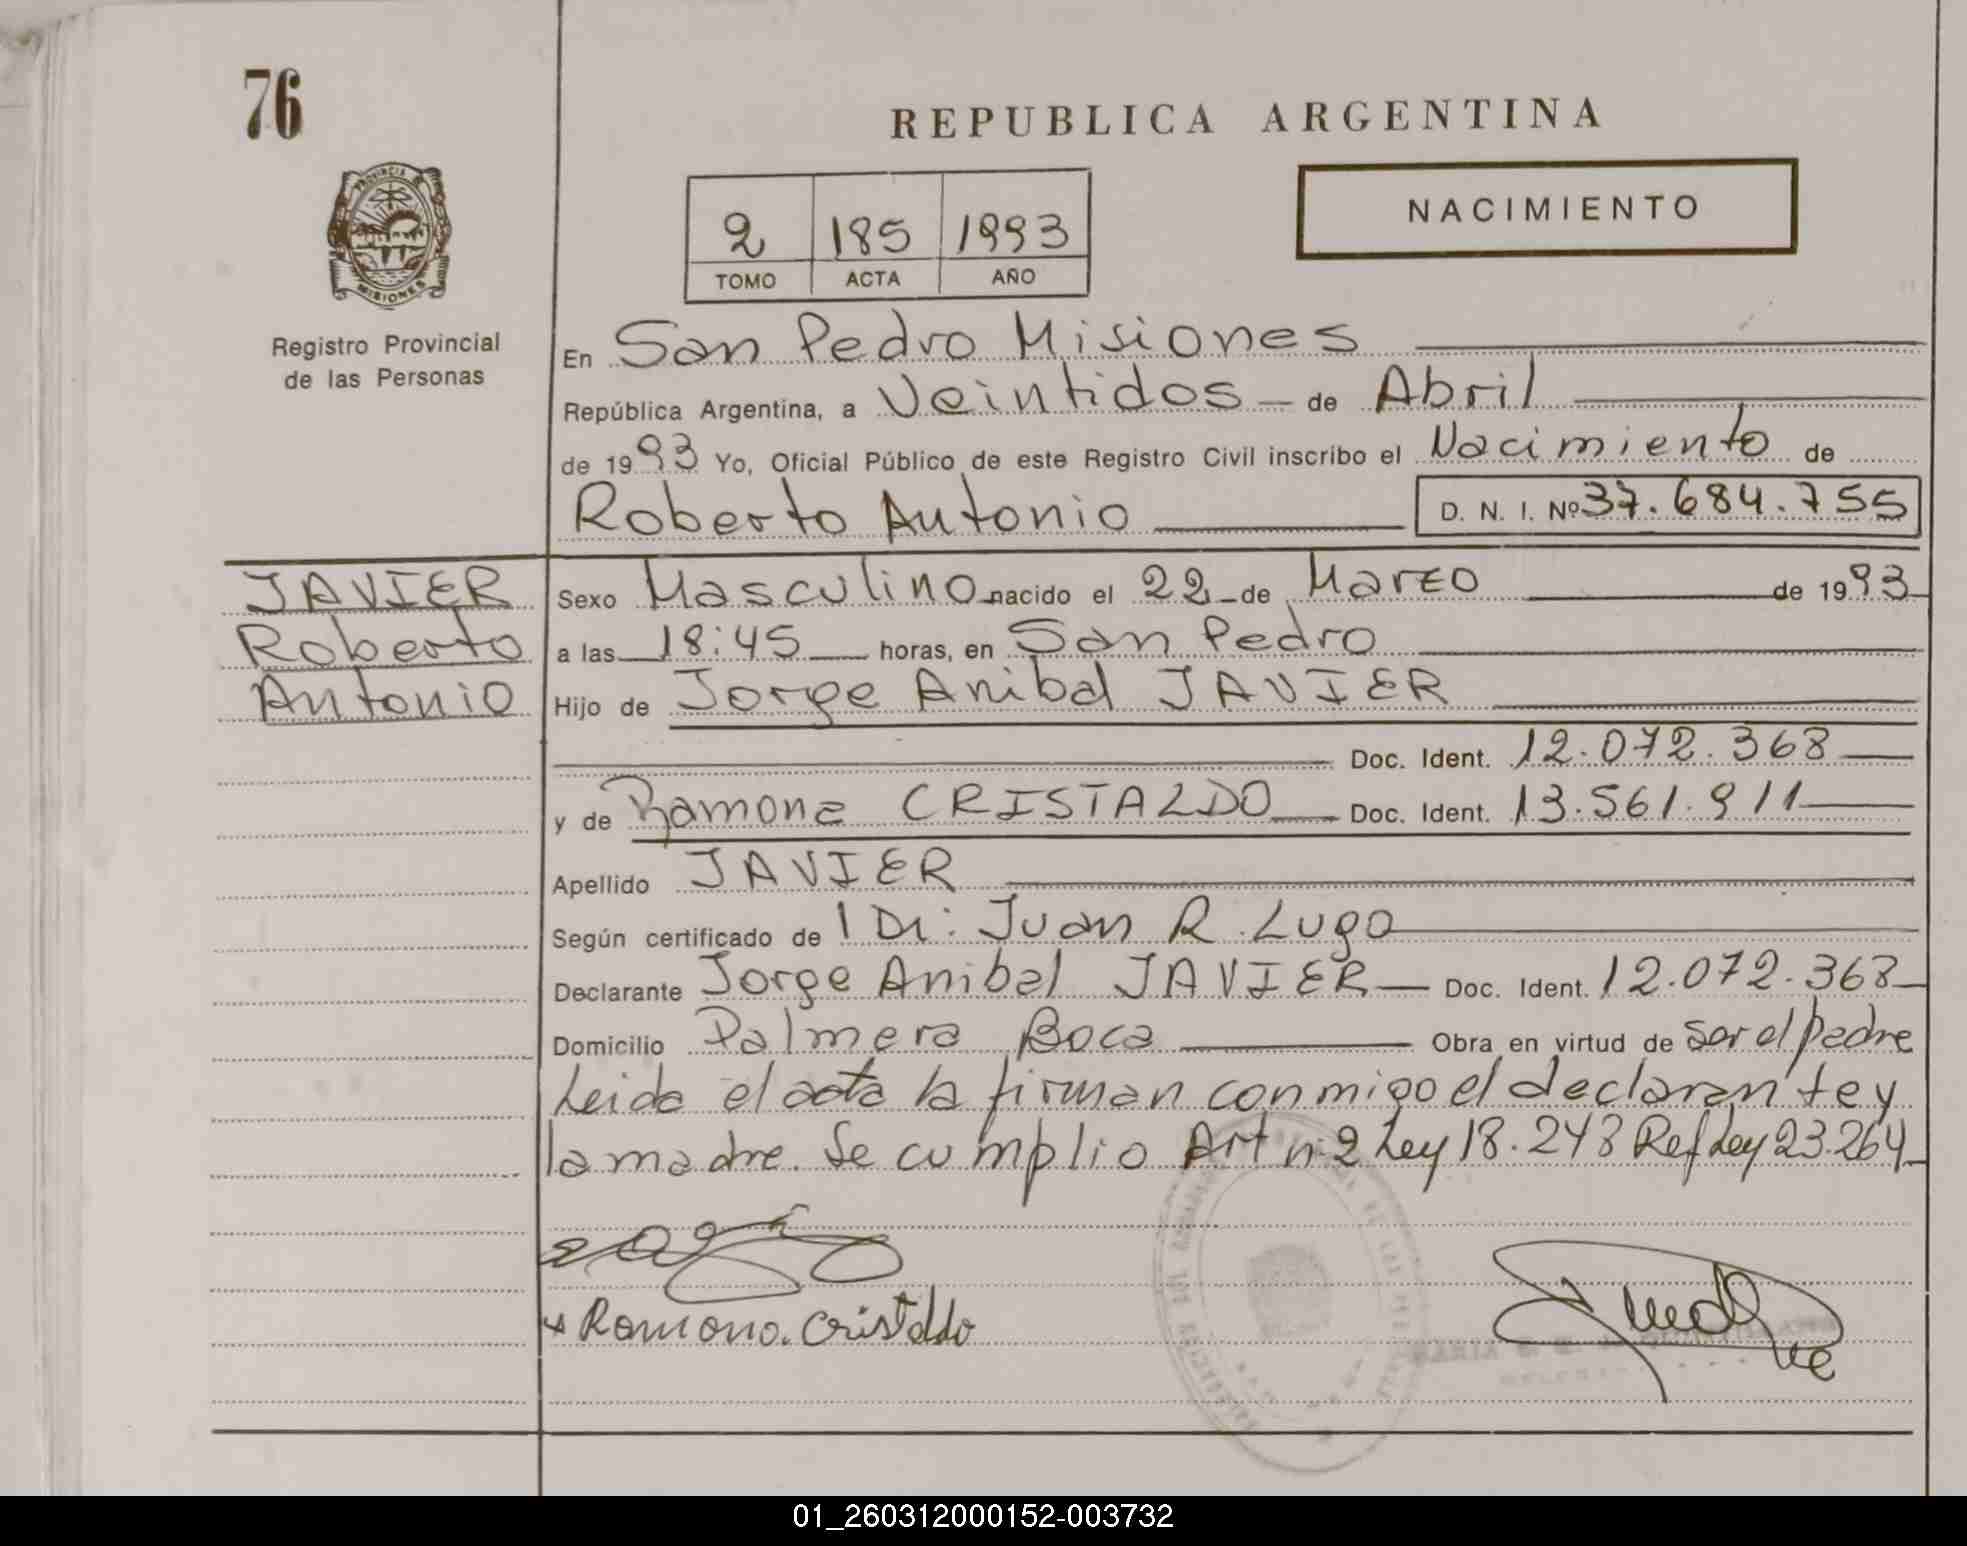 76
REPUBLICA ARGENTINA
NACIMIENTO
2 185 1993
TOMO ACTA AÑO
PROVINCIA DE
MISIONES
Registro Provincial
de las Personas
En San Pedro Misiones
República Argentina, a Veintidos de Abril
de 1993 Yo, Oficial Público de este Registro Civil inscribo el Nacimiento de
Roberto Antonio D. N. I. Nº 37.684.755
JAVIER
Roberto
Antonio
Sexo Masculino nacido el 22 de Marzo de 1993
a las 18:45 horas, en San Pedro
Hijo de Jorge Anibal JAVIER
Doc. Ident. 12.072.368
y de Ramona CRISTALDO Doc. Ident. 13.561.911
Apellido JAVIER
Según certificado de Juan R. Lugo
Declarante Jorge Anibal JAVIER Doc. Ident. 12.072.368
Domicilio Palmera Boca Obra en virtud de ser el padre
Leida el acta la firman conmigo el declarante y
la madre. Se cumplio Art nº 2 Ley 18.248 Ref Ley 23.264
x Ramona. Cristaldo
MARIA
01_260312000152-003732